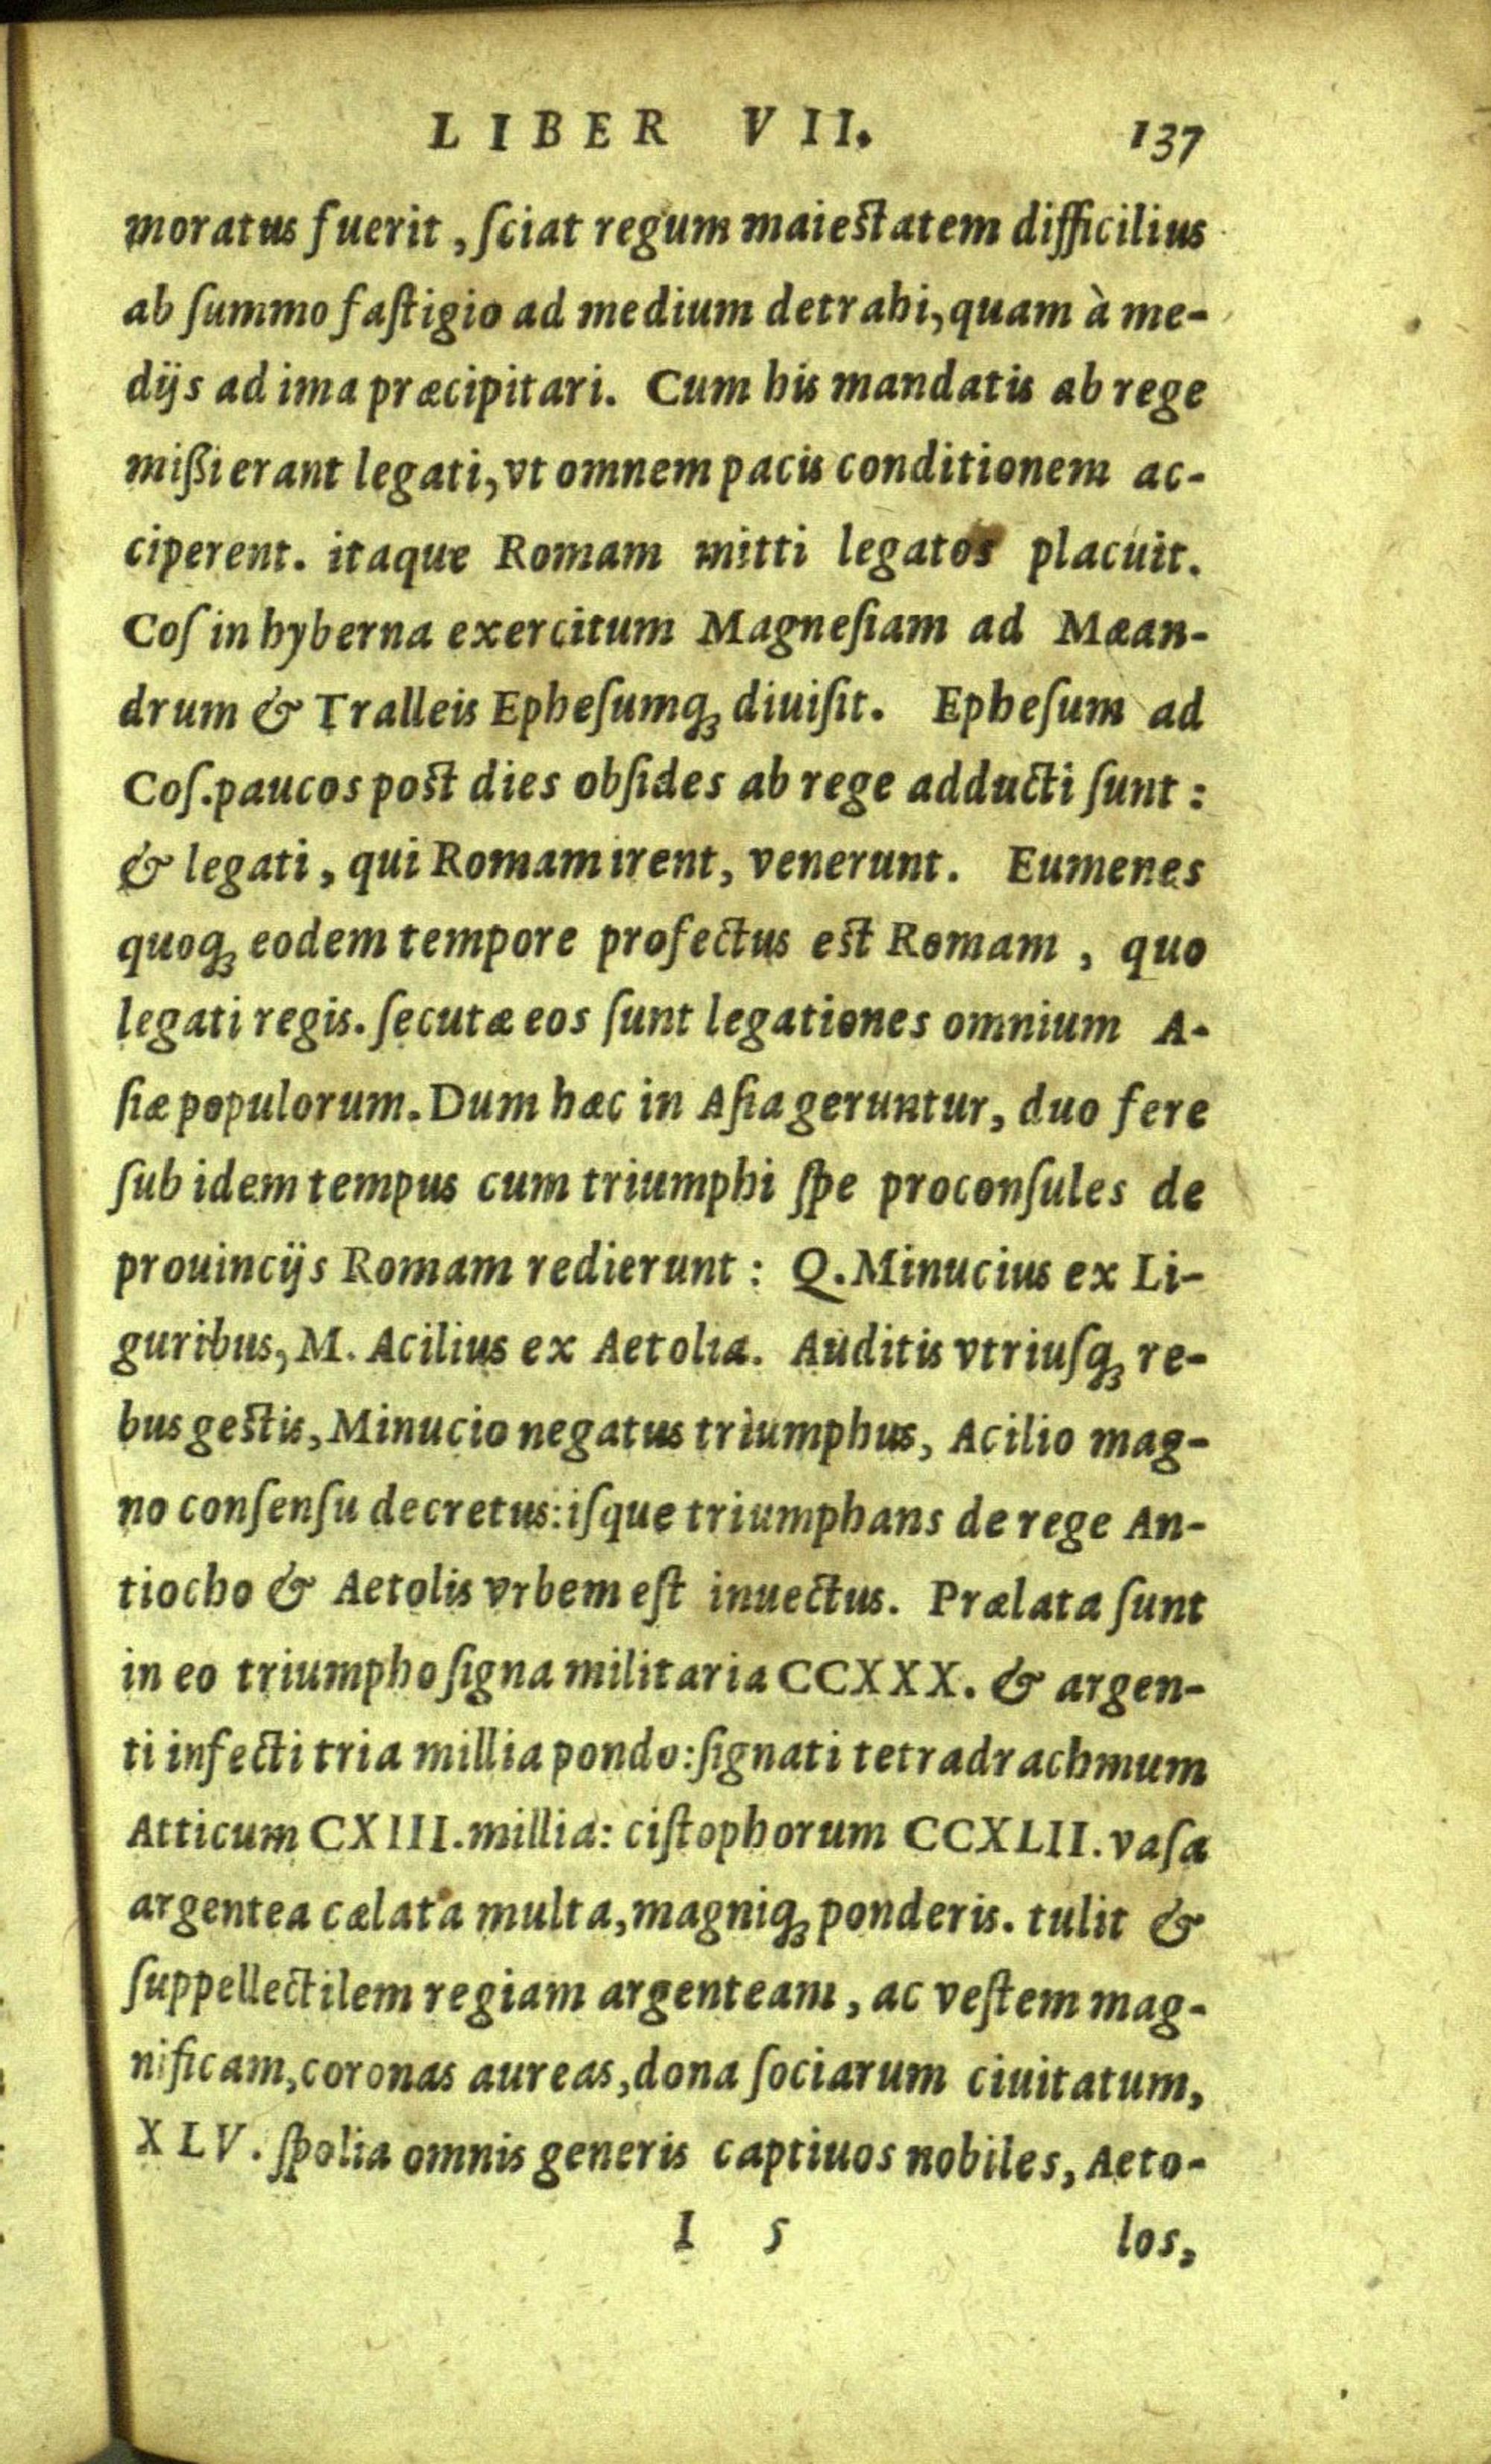 LIBER VII. 137
moratus fuerit, ſciat regum maieſtatem difficilius
ab ſummo faſtigio ad medium detrahi, quam à me-
dijs ad ima præcipitari. Cum his mandatis ab rege
mißi erant legati, vt omnem pacis conditionem ac-
ciperent. itaque Romam mitti legatos placuit.
Coſ in hyberna exercitum Magneſiam ad Mæan-
drum & Tralleis Epheſumq́; diuiſit. Epheſum ad
Coſ. paucos poſt dies obſides ab rege adducti ſunt:
& legati, qui Romam irent, venerunt. Eumenes
quoq; eodem tempore profectus eſt Romam, quo
legati regis. ſecutæ eos ſunt legationes omnium A-
ſiæ populorum. Dum hæc in Aſia geruntur, duo fere
ſub idem tempus cum triumphi ſpe proconſules de
prouincijs Romam redierunt: Q. Minucius ex Li-
guribus, M. Acilius ex Aetolia. Auditis vtriuſq; re-
bus geſtis, Minucio negatus triumphus, Acilio mag-
no conſenſu decretus: iſque triumphans de rege An-
tiocho & Aetolis vrbem eſt inuectus. Prælata ſunt
in eo triumpho ſigna militaria CCXXX. & argen-
ti infecti tria millia pondo: ſignati tetradrachmum
Atticum CXIII. millia: ciſtophorum CCXLII. vaſa
argentea cælata multa, magniq; ponderis. tulit &
ſuppellectilem regiam argenteam, ac veſtem mag-
nificam, coronas aureas, dona ſociarum ciuitatum,
XLV. ſpolia omnis generis captiuos nobiles, Aeto-
I 5 los,